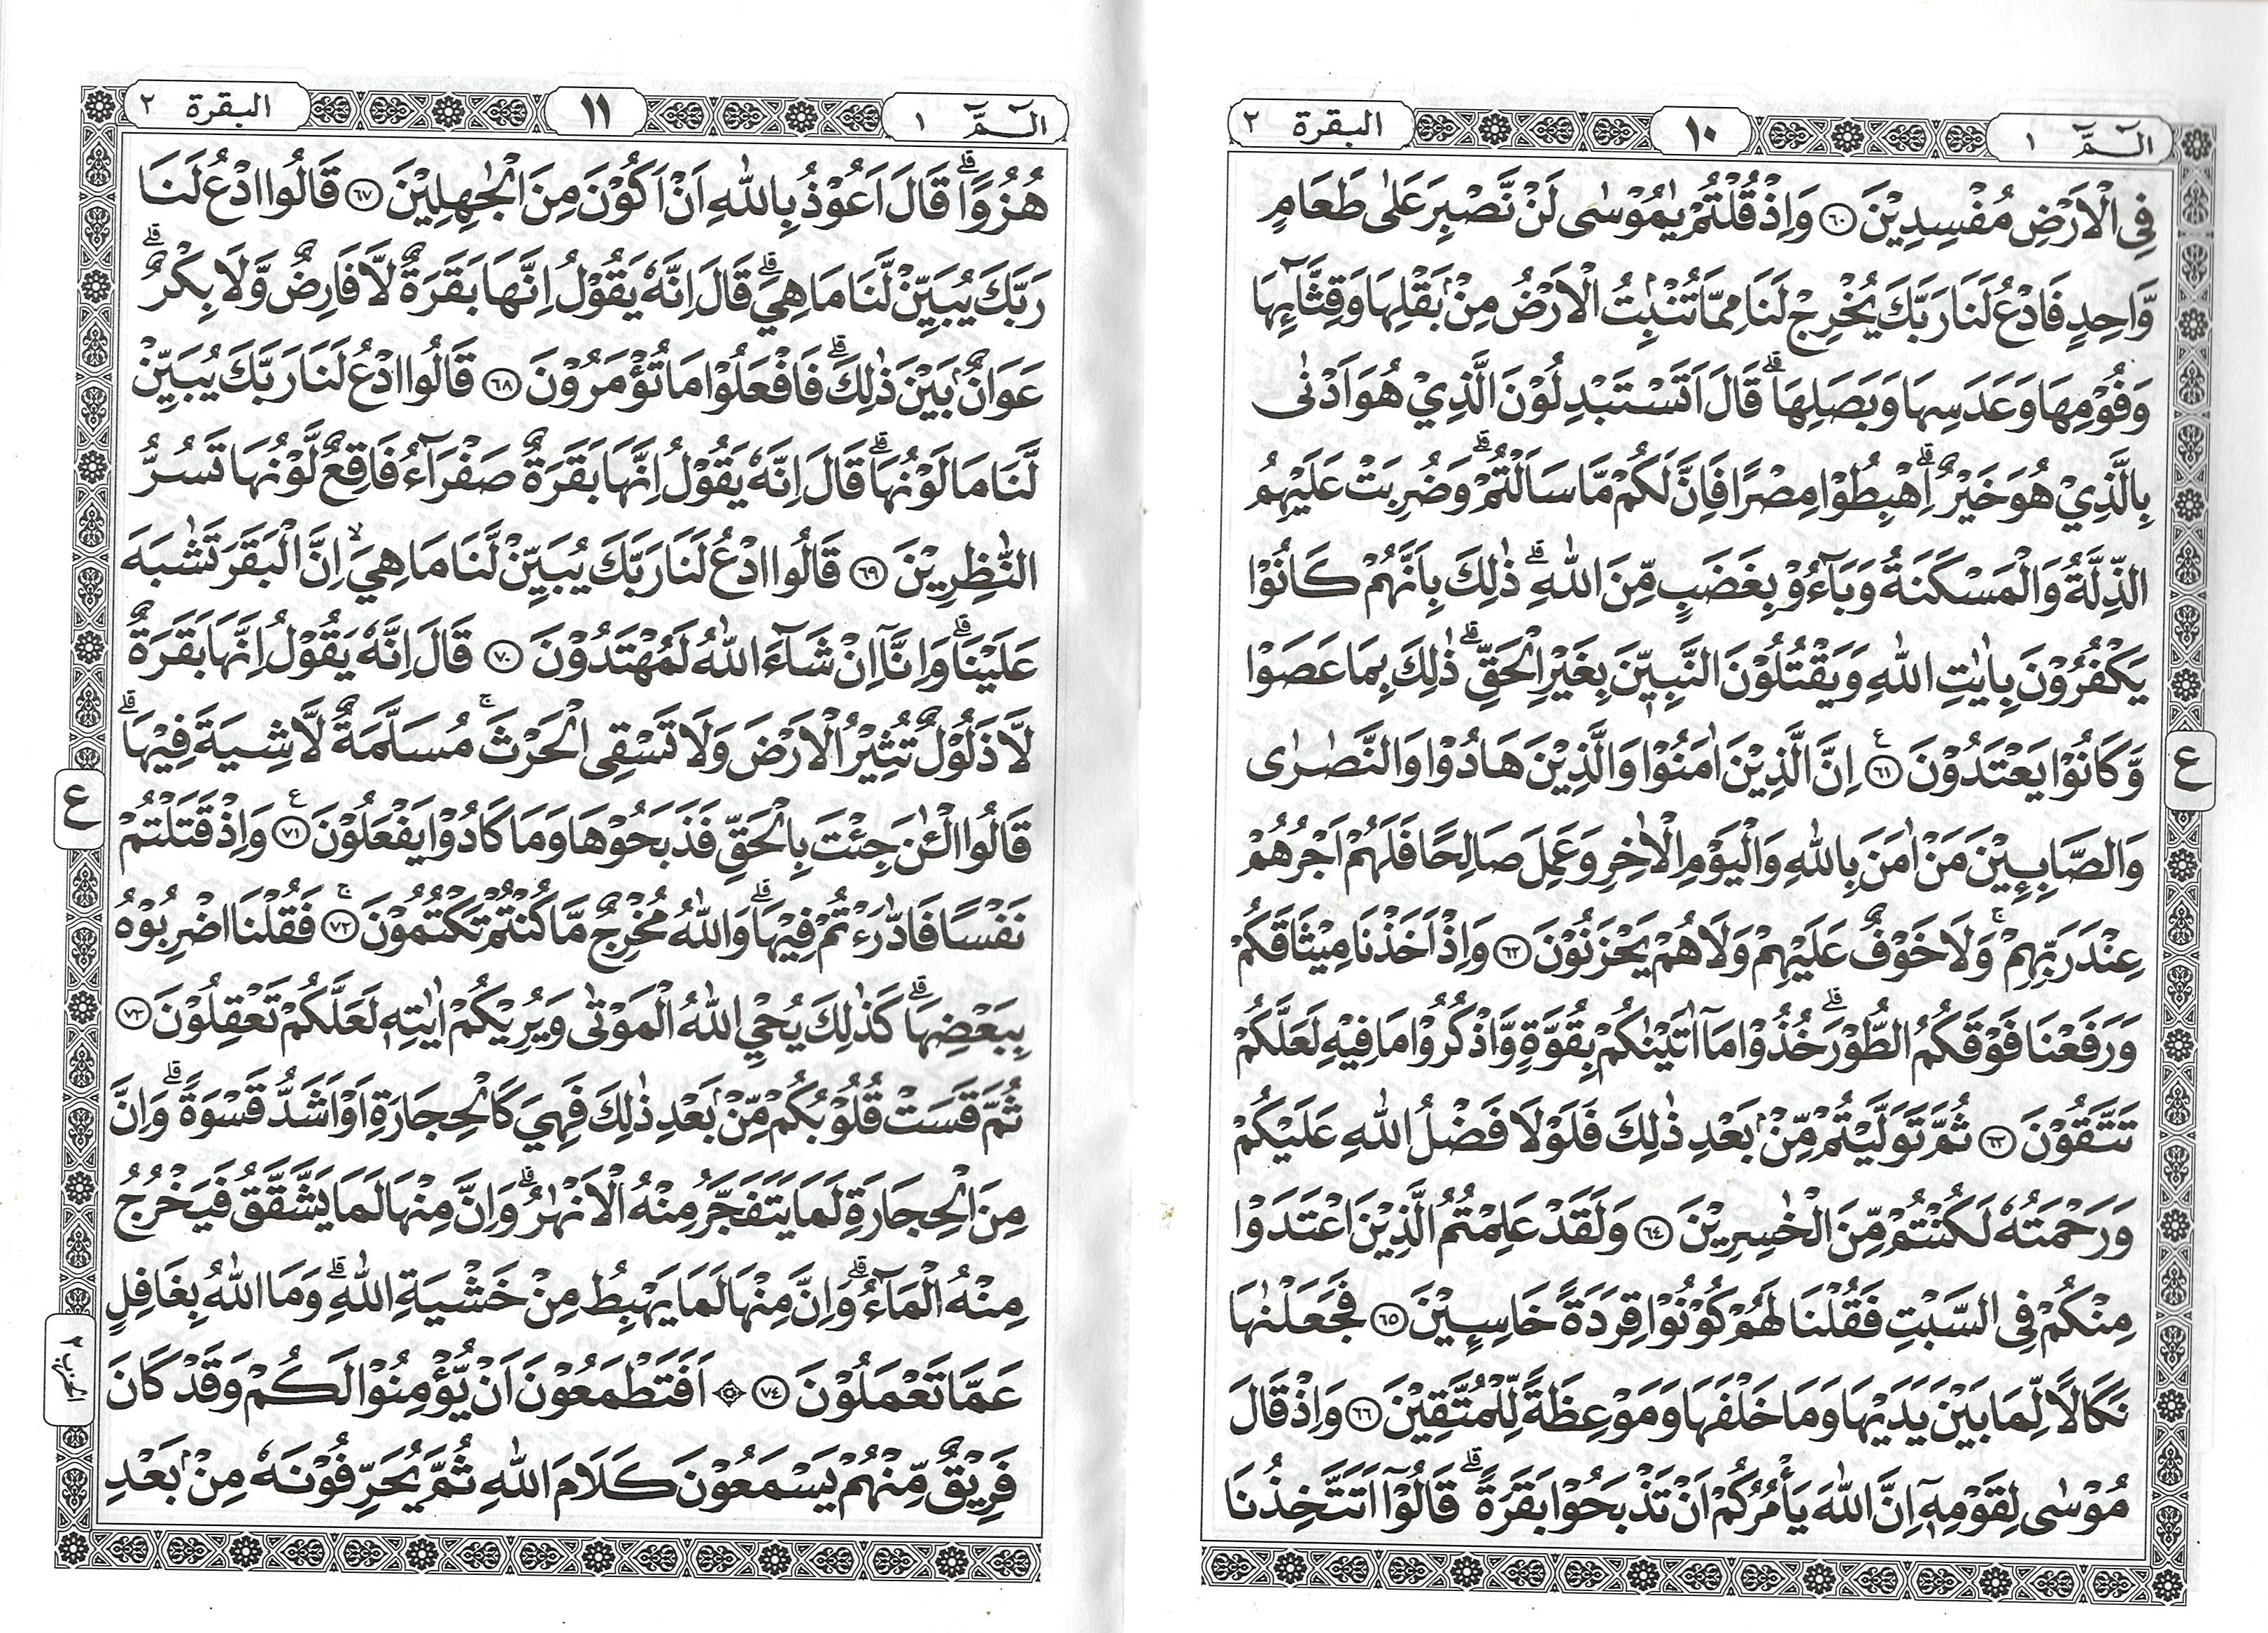 الٓـمّٓ ١
١٠
البقرة ٢
فِى الْاَرْضِ مُفْسِدِيْنَ ۝٦٠ وَاِذْ قُلْتُمْ يٰمُوْسٰى لَنْ نَّصْبِرَ عَلٰى طَعَامٍ
وَّاحِدٍ فَادْعُ لَنَا رَبَّكَ يُخْرِجْ لَنَا مِمَّا تُنْۢبِتُ الْاَرْضُ مِنْۢ بَقْلِهَا وَقِثَّآئِهَا
وَفُوْمِهَا وَعَدَسِهَا وَبَصَلِهَاۗ قَالَ اَتَسْتَبْدِلُوْنَ الَّذِيْ هُوَ اَدْنٰى
بِالَّذِيْ هُوَ خَيْرٌۗ اِهْبِطُوْا مِصْرًا فَاِنَّ لَكُمْ مَّا سَاَلْتُمْۗ وَضُرِبَتْ عَلَيْهِمُ
الذِّلَّةُ وَالْمَسْكَنَةُ وَبَآءُوْ بِغَضَبٍ مِّنَ اللّٰهِۗ ذٰلِكَ بِاَنَّهُمْ كَانُوْا
يَكْفُرُوْنَ بِاٰيٰتِ اللّٰهِ وَيَقْتُلُوْنَ النَّبِيّٖنَ بِغَيْرِ الْحَقِّۗ ذٰلِكَ بِمَا عَصَوْا
وَّكَانُوْا يَعْتَدُوْنَ ۝٦١ ع اِنَّ الَّذِيْنَ اٰمَنُوْا وَالَّذِيْنَ هَادُوْا وَالنَّصٰرٰى
ع
وَالصَّابِـِٕيْنَ مَنْ اٰمَنَ بِاللّٰهِ وَالْيَوْمِ الْاٰخِرِ وَعَمِلَ صَالِحًا فَلَهُمْ اَجْرُهُمْ
عِنْدَ رَبِّهِمْۚ وَلَا خَوْفٌ عَلَيْهِمْ وَلَا هُمْ يَحْزَنُوْنَ ۝٦٢ وَاِذْ اَخَذْنَا مِيْثَاقَكُمْ
وَرَفَعْنَا فَوْقَكُمُ الطُّوْرَۗ خُذُوْا مَآ اٰتَيْنٰكُمْ بِقُوَّةٍ وَّاذْكُرُوْا مَا فِيْهِ لَعَلَّكُمْ
تَتَّقُوْنَ ۝٦٣ ثُمَّ تَوَلَّيْتُمْ مِّنْۢ بَعْدِ ذٰلِكَ فَلَوْلَا فَضْلُ اللّٰهِ عَلَيْكُمْ
وَرَحْمَتُهٗ لَكُنْتُمْ مِّنَ الْخٰسِرِيْنَ ۝٦٤ وَلَقَدْ عَلِمْتُمُ الَّذِيْنَ اعْتَدَوْا
مِنْكُمْ فِى السَّبْتِ فَقُلْنَا لَهُمْ كُوْنُوْا قِرَدَةً خَاسِـِٕيْنَ ۝٦٥ فَجَعَلْنٰهَا
نَكَالًا لِّمَا بَيْنَ يَدَيْهَا وَمَا خَلْفَهَا وَمَوْعِظَةً لِّلْمُتَّقِيْنَ ۝٦٦ وَاِذْ قَالَ
مُوْسٰى لِقَوْمِهٖٓ اِنَّ اللّٰهَ يَأْمُرُكُمْ اَنْ تَذْبَحُوْا بَقَرَةًۗ قَالُوْٓا اَتَتَّخِذُنَا
الٓـمّٓ ١
١١
البقرة ٢
هُزُوًاۗ قَالَ اَعُوْذُ بِاللّٰهِ اَنْ اَكُوْنَ مِنَ الْجٰهِلِيْنَ ۝٦٧ قَالُوا ادْعُ لَنَا
رَبَّكَ يُبَيِّنْ لَّنَا مَا هِيَۗ قَالَ اِنَّهٗ يَقُوْلُ اِنَّهَا بَقَرَةٌ لَّا فَارِضٌ وَّلَا بِكْرٌۗ
عَوَانٌۢ بَيْنَ ذٰلِكَۗ فَافْعَلُوْا مَا تُؤْمَرُوْنَ ۝٦٨ قَالُوا ادْعُ لَنَا رَبَّكَ يُبَيِّنْ
لَّنَا مَا لَوْنُهَاۗ قَالَ اِنَّهٗ يَقُوْلُ اِنَّهَا بَقَرَةٌ صَفْرَآءُ فَاقِعٌ لَّوْنُهَا تَسُرُّ
النّٰظِرِيْنَ ۝٦٩ قَالُوا ادْعُ لَنَا رَبَّكَ يُبَيِّنْ لَّنَا مَا هِيَۙ اِنَّ الْبَقَرَ تَشٰبَهَ
عَلَيْنَاۗ وَاِنَّآ اِنْ شَآءَ اللّٰهُ لَمُهْتَدُوْنَ ۝٧٠ قَالَ اِنَّهٗ يَقُوْلُ اِنَّهَا بَقَرَةٌ
لَّا ذَلُوْلٌ تُثِيْرُ الْاَرْضَ وَلَا تَسْقِى الْحَرْثَۚ مُسَلَّمَةٌ لَّا شِيَةَ فِيْهَاۗ
قَالُوا الْـٰٔنَ جِئْتَ بِالْحَقِّ فَذَبَحُوْهَا وَمَا كَادُوْا يَفْعَلُوْنَ ۝٧١ ع وَاِذْ قَتَلْتُمْ
ع
نَفْسًا فَادّٰرَءْتُمْ فِيْهَاۗ وَاللّٰهُ مُخْرِجٌ مَّا كُنْتُمْ تَكْتُمُوْنَ ۝٧٢ۚ فَقُلْنَا اضْرِبُوْهُ
بِبَعْضِهَاۗ كَذٰلِكَ يُحْيِ اللّٰهُ الْمَوْتٰى وَيُرِيْكُمْ اٰيٰتِهٖ لَعَلَّكُمْ تَعْقِلُوْنَ ۝٧٣
ثُمَّ قَسَتْ قُلُوْبُكُمْ مِّنْۢ بَعْدِ ذٰلِكَ فَهِيَ كَالْحِجَارَةِ اَوْ اَشَدُّ قَسْوَةًۗ وَاِنَّ
مِنَ الْحِجَارَةِ لَمَا يَتَفَجَّرُ مِنْهُ الْاَنْهٰرُۗ وَاِنَّ مِنْهَا لَمَا يَشَّقَّقُ فَيَخْرُجُ
مِنْهُ الْمَآءُۗ وَاِنَّ مِنْهَا لَمَا يَهْبِطُ مِنْ خَشْيَةِ اللّٰهِۗ وَمَا اللّٰهُ بِغَافِلٍ
عَمَّا تَعْمَلُوْنَ ۝٧٤ ۞ اَفَتَطْمَعُوْنَ اَنْ يُّؤْمِنُوْا لَكُمْ وَقَدْ كَانَ
الحزب ٢
فَرِيْقٌ مِّنْهُمْ يَسْمَعُوْنَ كَلَامَ اللّٰهِ ثُمَّ يُحَرِّفُوْنَهٗ مِنْۢ بَعْدِ